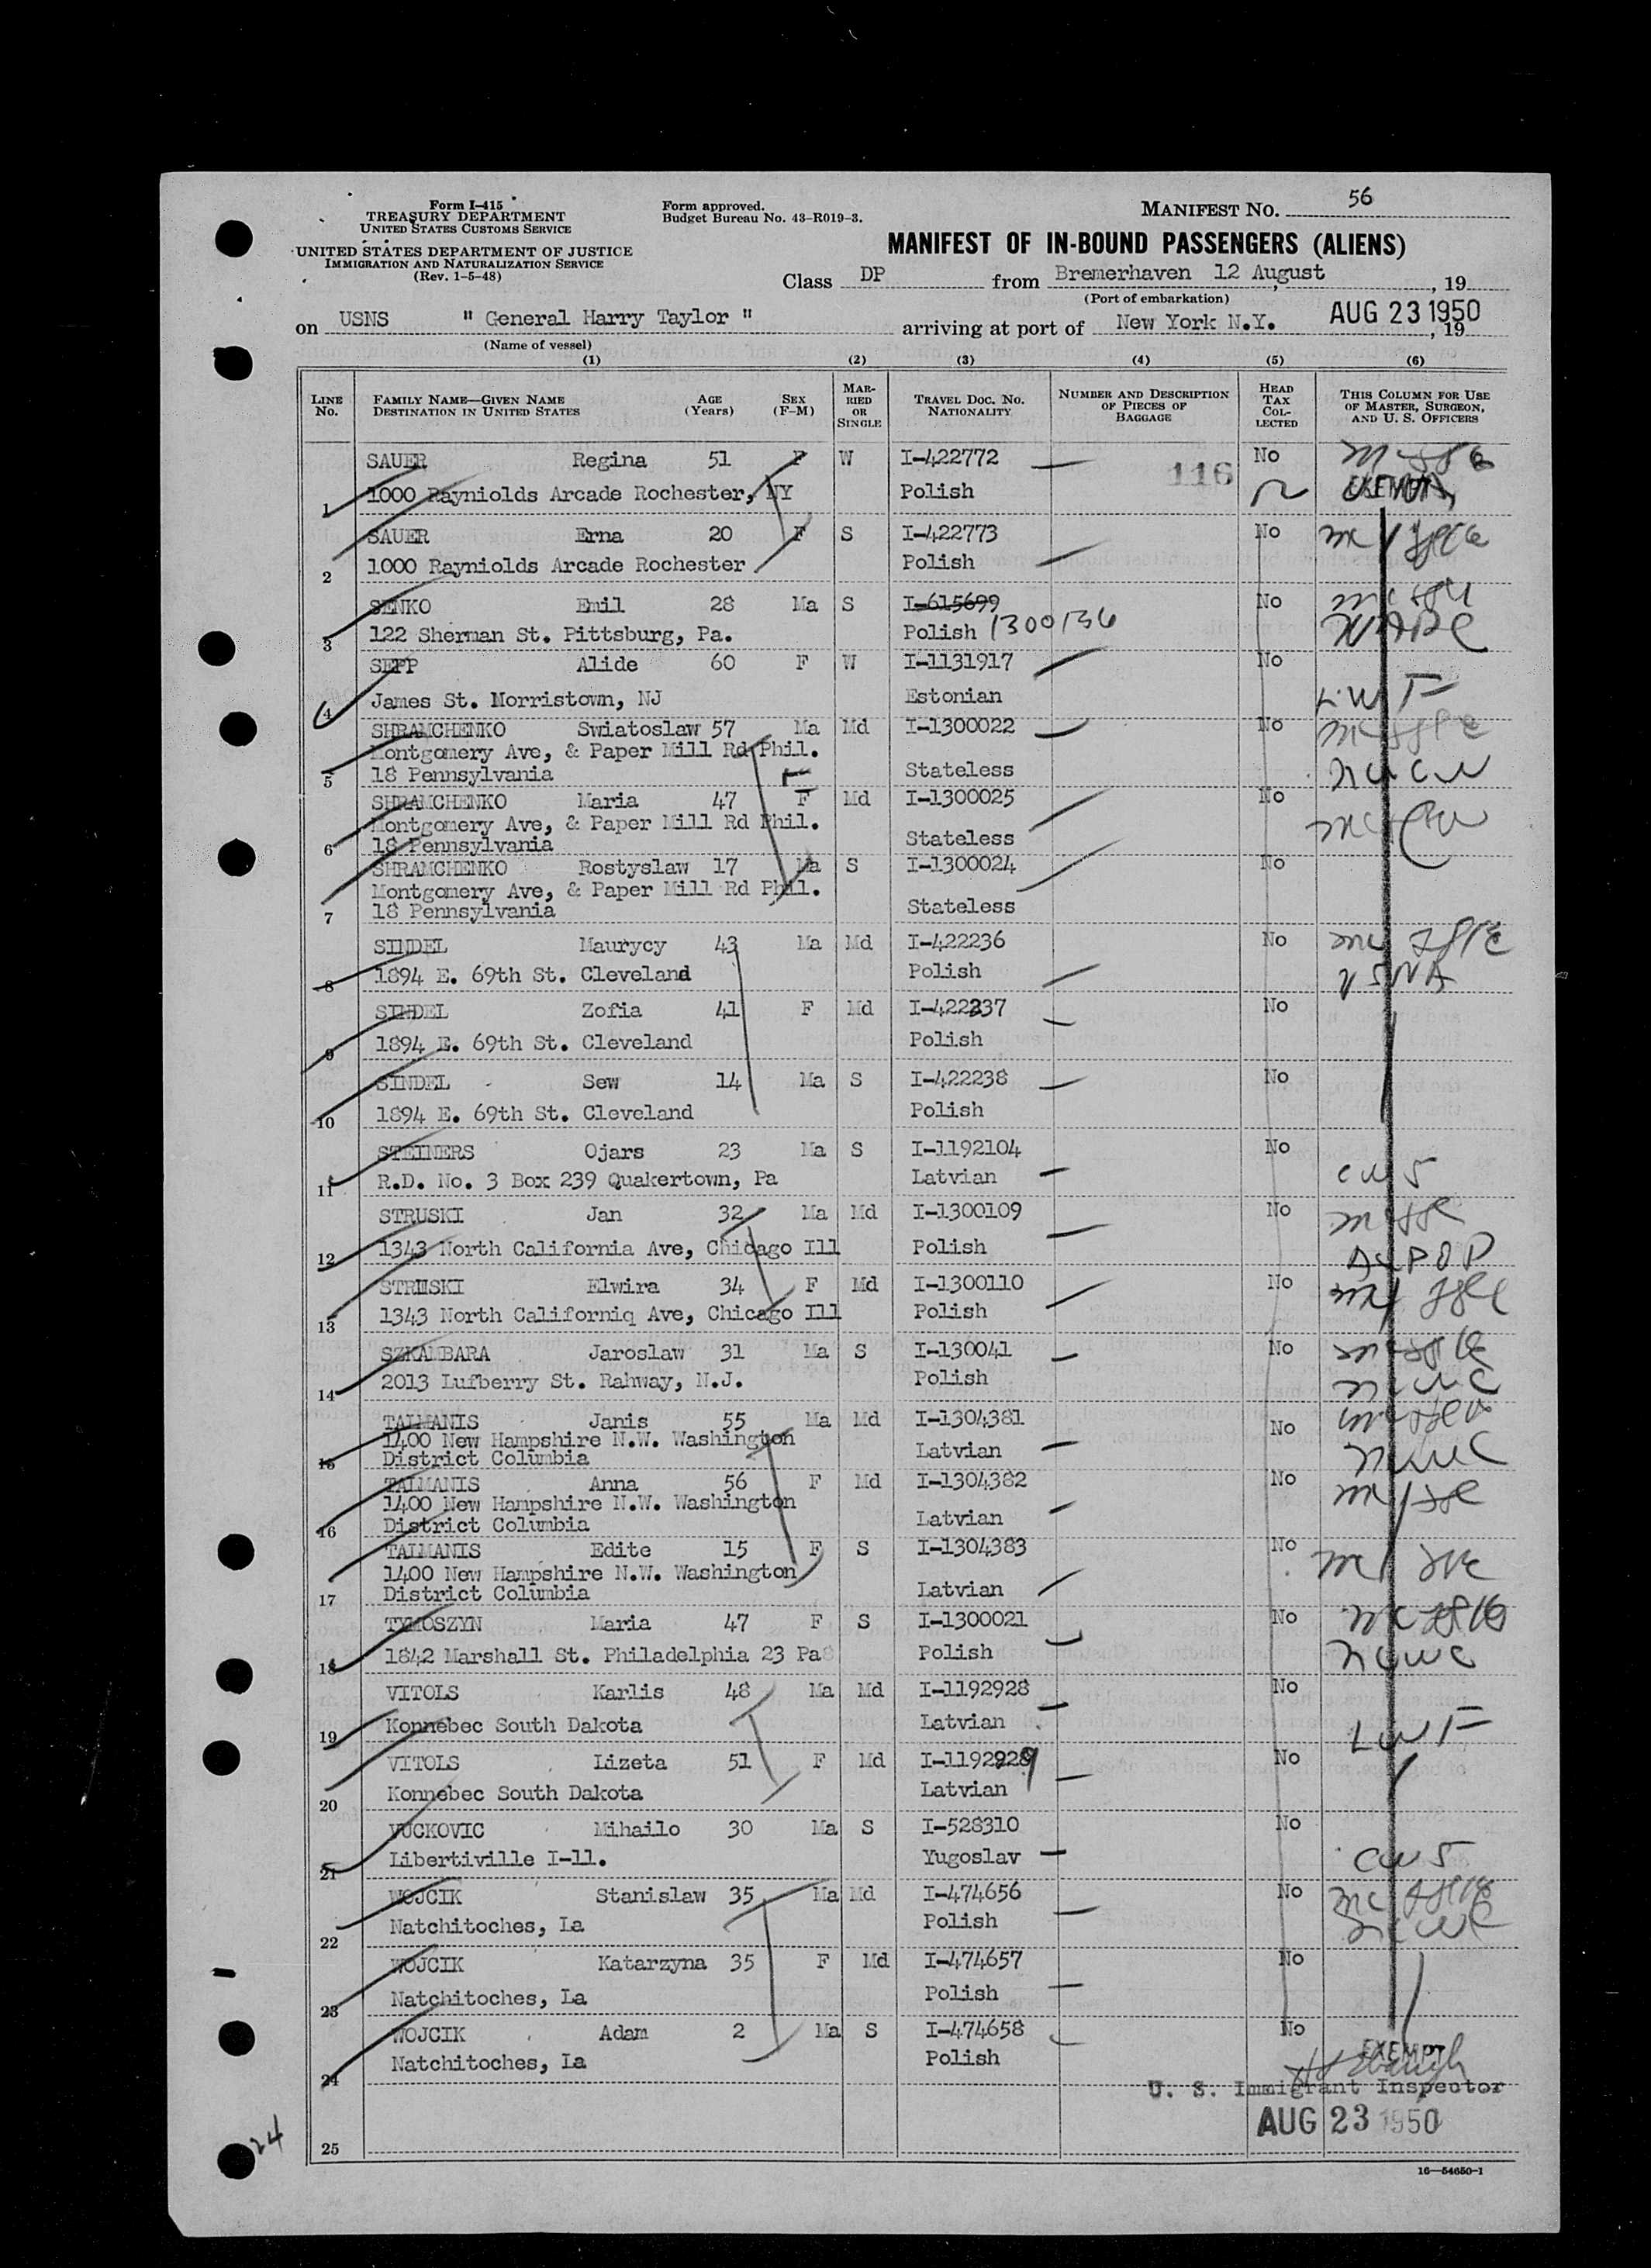 Form I-415
TREASURY DEPARTMENT
UNITED STATES CUSTOMS SERVICE
UNITED STATES DEPARTMENT OF JUSTICE
IMMIGRATION AND NATURALIZATION SERVICE
(Rev. 1-5-48)
Form approved.
Budget Bureau No. 43-R019-3.
MANIFEST NO. 56
MANIFEST OF IN-BOUND PASSENGERS (ALIENS)
Class DP from Bremerhaven 12 August, 19
(Port of embarkation)
on USNS " General Harry Taylor " arriving at port of New York N.Y. AUG 23 1950, 19
(Name of vessel)
(1) (2) (3) (4) (5) (6)
LINE NO. FAMILY NAME—GIVEN NAME DESTINATION IN UNITED STATES AGE (Years) SEX (F-M) MARRIED OR SINGLE TRAVEL DOC. NO. NATIONALITY NUMBER AND DESCRIPTION OF PIECES OF BAGGAGE HEAD TAX COLLECTED THIS COLUMN FOR USE OF MASTER, SURGEON, AND U. S. OFFICERS
SAUER Regina 51 F W I-422772 116 No
1 1000 Rayniolds Arcade Rochester, NY Polish EXEMPT
SAUER Erna 20 F S I-422773 No
2 1000 Rayniolds Arcade Rochester Polish
SENKO Emil 28 Ma S I-615699 No
3 122 Sherman St. Pittsburg, Pa. Polish 1300136
SEPP Alide 60 F W I-1131917 No
4 James St. Morristown, NJ Estonian LWF
SHRAMCHENKO Swiatoslaw 57 Ma Md I-1300022 No
Montgomery Ave, & Paper Mill Rd Phil.
5 18 Pennsylvania Stateless
SHRAMCHENKO Maria 47 F Md I-1300025 No
Montgomery Ave, & Paper Mill Rd Phil.
6 18 Pennsylvania Stateless
SHRAMCHENKO Rostyslaw 17 Ma S I-1300024 No
Montgomery Ave, & Paper Mill Rd Phil.
7 18 Pennsylvania Stateless
SINDEL Maurycy 43 Ma Md I-422236 No
8 1894 E. 69th St. Cleveland Polish USNA
SINDEL Zofia 41 F Md I-422237 No
9 1894 E. 69th St. Cleveland Polish
SINDEL Sew 14 Ma S I-422238 No
10 1894 E. 69th St. Cleveland Polish
STEINERS Ojars 23 Ma S I-1192104 No
11 R.D. No. 3 Box 239 Quakertown, Pa Latvian CWS
STRUSKI Jan 32 Ma Md I-1300109 No
12 1343 North California Ave, Chicago Ill Polish
STRUSKI Elwira 34 F Md I-1300110 No
13 1343 North Californiq Ave, Chicago Ill Polish
SZKAMBARA Jaroslaw 31 Ma S I-130041 No
14 2013 Lufberry St. Rahway, N.J. Polish
TALMANIS Janis 55 Ma Md I-1304381 No
1400 New Hampshire N.W. Washington
15 District Columbia Latvian
TALMANIS Anna 56 F Md I-1304382 No
1400 New Hampshire N.W. Washington
16 District Columbia Latvian
TALMANIS Edite 15 F S I-1304383 No
1400 New Hampshire N.W. Washington
17 District Columbia Latvian
TYMOSZYN Maria 47 F S I-1300021 No
18 1842 Marshall St. Philadelphia 23 Pa Polish
VITOLS Karlis 48 Ma Md I-1192928 No
19 Konnebec South Dakota Latvian LWF
VITOLS Lizeta 51 F Md I-1192929 No
20 Konnebec South Dakota Latvian
VUCKOVIC Mihailo 30 Ma S I-528310 No
21 Libertiville I-ll. Yugoslav CWS
WOJCIK Stanislaw 35 Ma Md I-474656 No
22 Natchitoches, La Polish
WOJCIK Katarzyna 35 F Md I-474657 No
23 Natchitoches, La Polish
WOJCIK Adam 2 Ma S I-474658 No
24 Natchitoches, La Polish EXEMPT
U. S. Immigrant Inspector
AUG 23 1950
24
25
16—54650-1